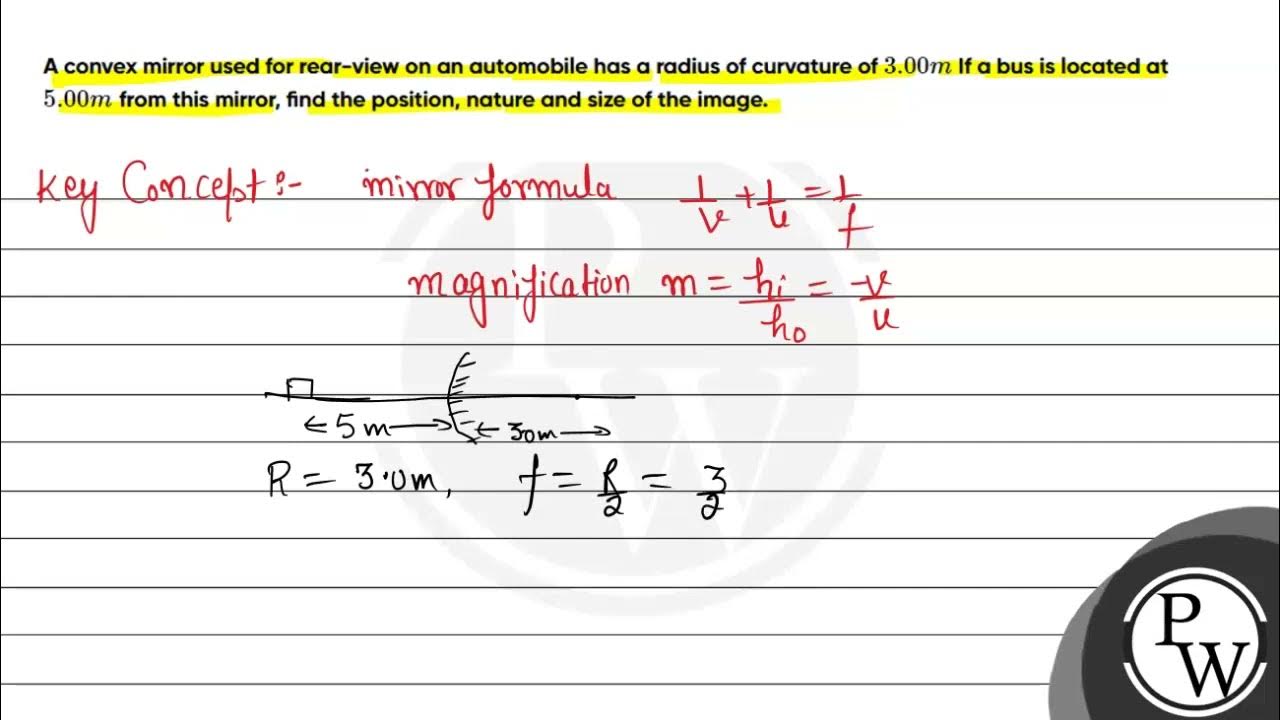 A convex mirror used for rear-view on an automobile has a radius of curvature of 3.00m If a bus is located at
5.00m from this mirror, find the position, nature and size of the image.
Key Concept:- mirror formula 1/v + 1/u = 1/f
magnification m = hi/ho = -v/u
← 5m → ← 3.0m →
R = 3.0m, f = R/2 = 3/2
P
W
P
W